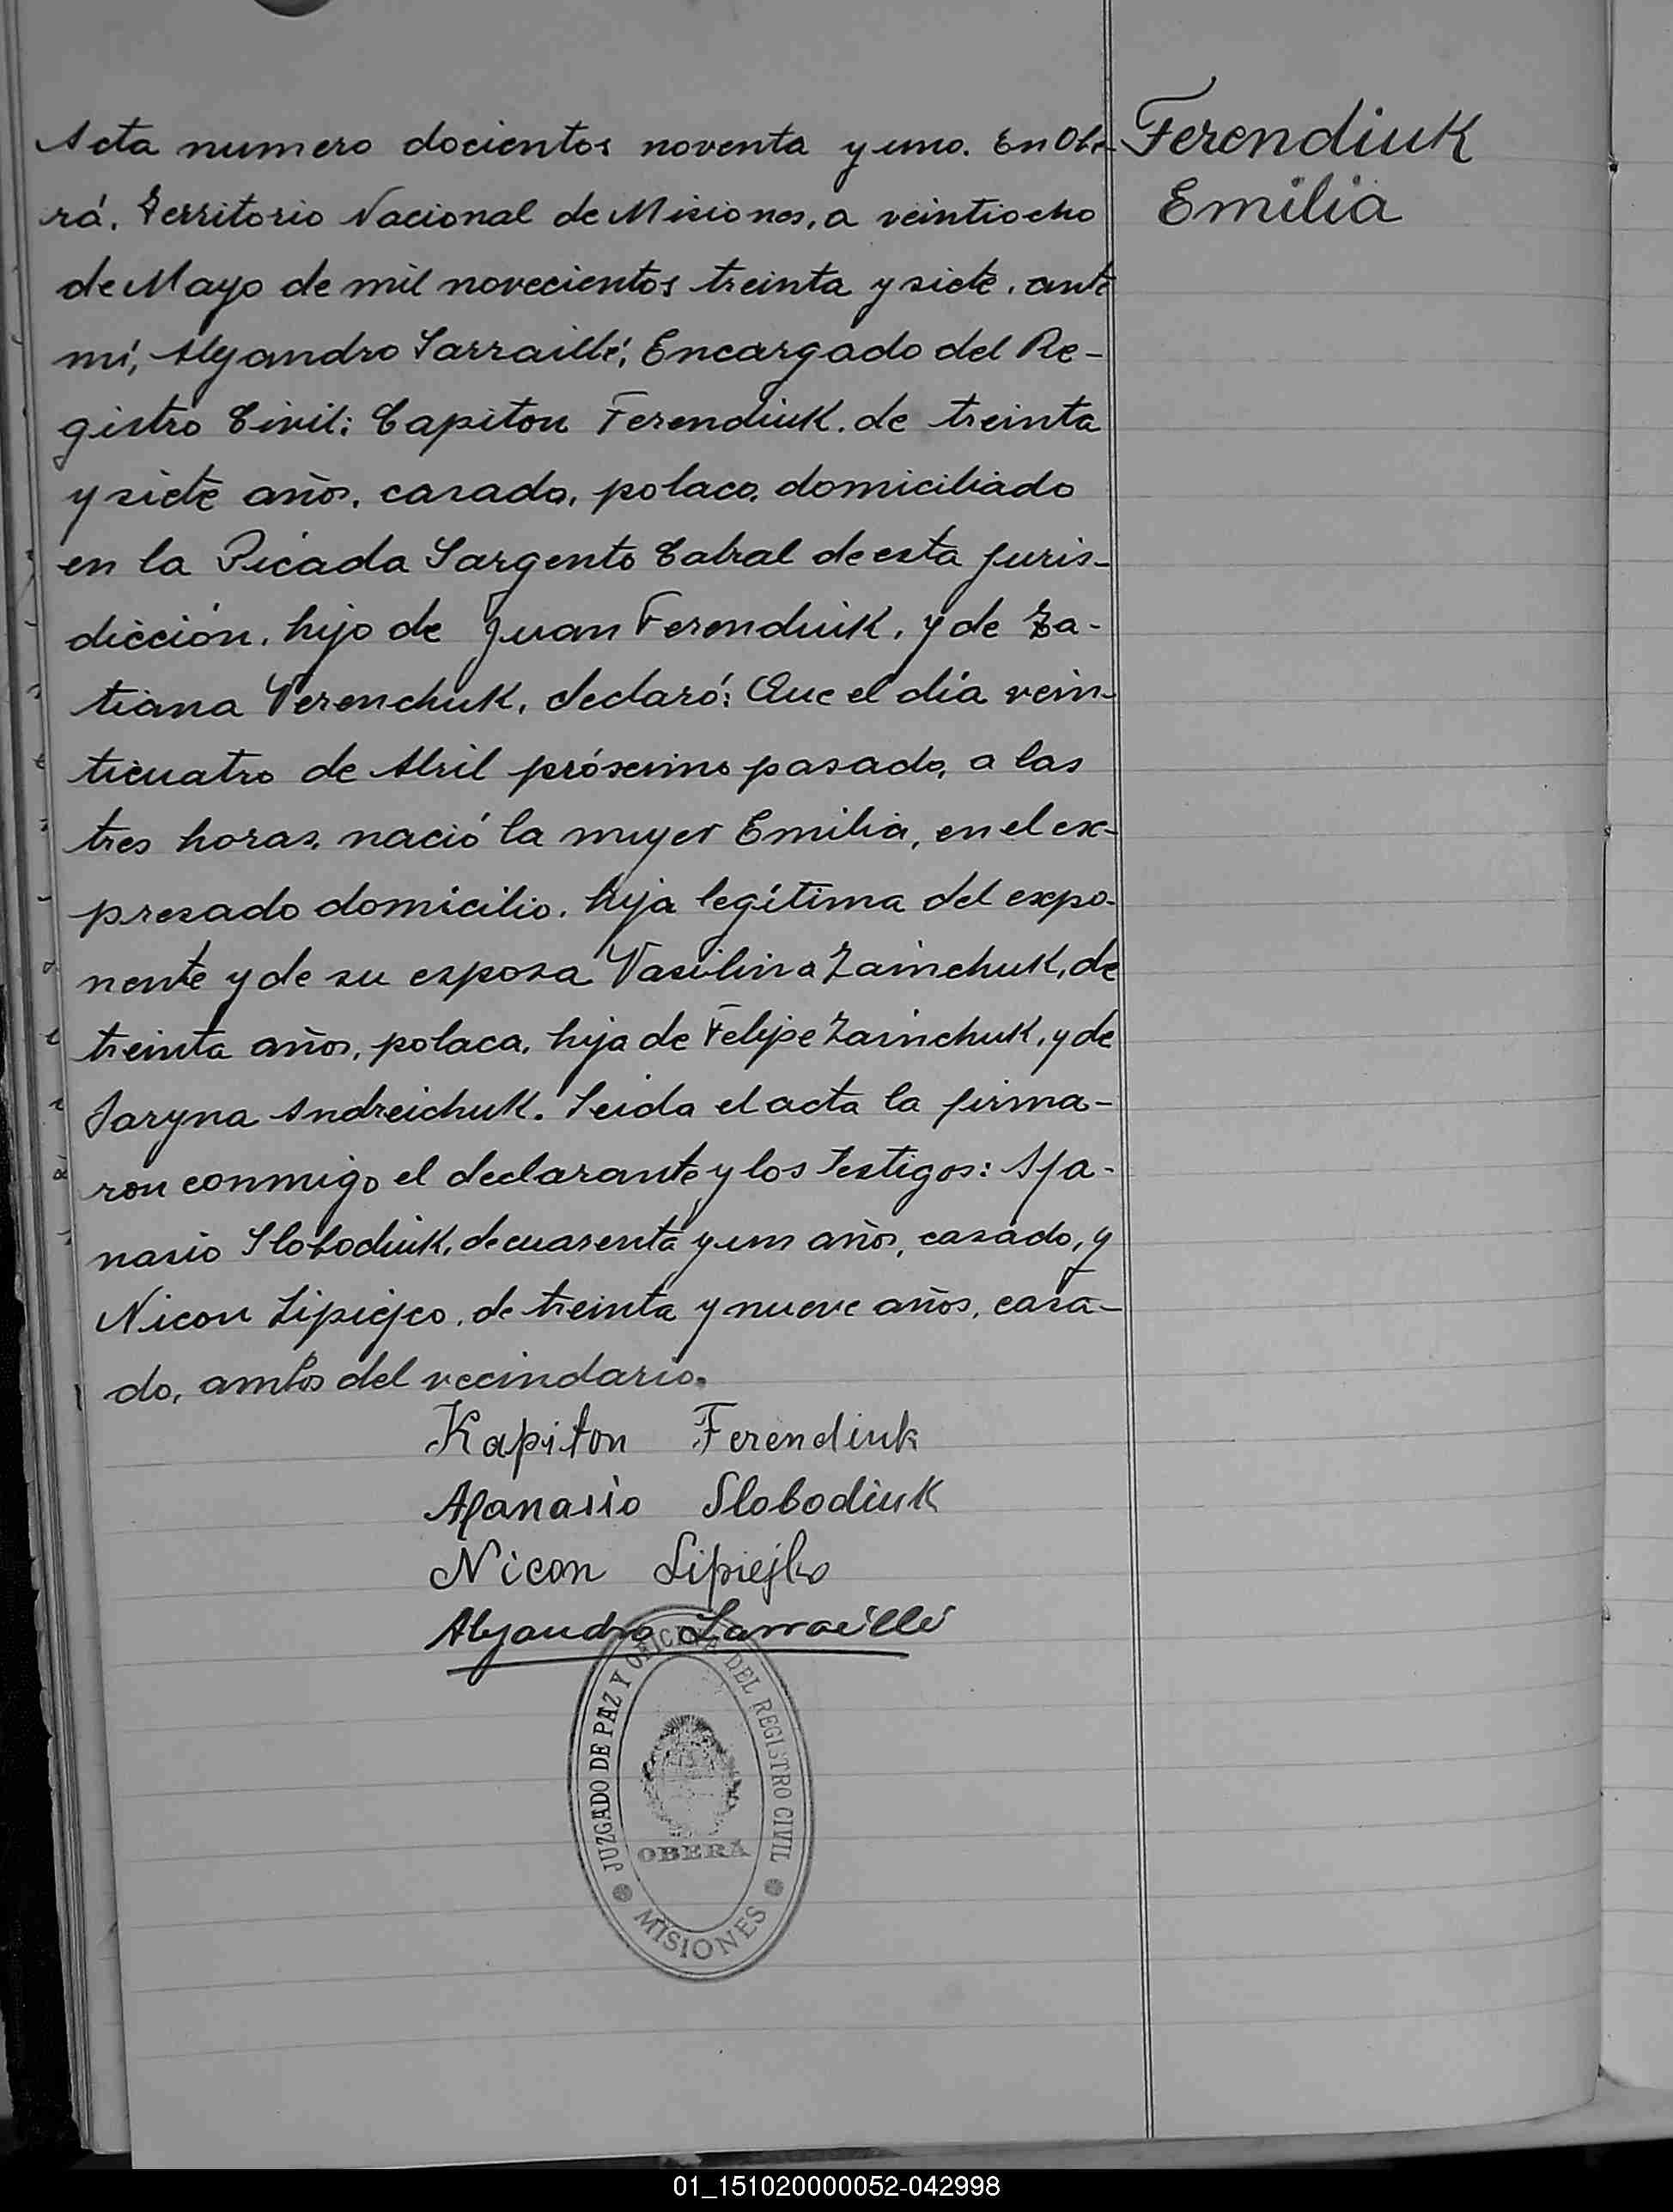 Acta numero docientos noventa y uno. En Obe-
rá, Territorio Nacional de Misiones, a veintiocho
de Mayo de mil novecientos treinta y siete, ante
mí, Alejandro Larraillé, Encargado del Re-
gistro Civil: Capiton Ferendiuk, de treinta
y siete años, casado, polaco, domiciliado
en la Picada Sargento Cabral de esta juris-
dicción, hijo de Juan Ferendiuk, y de Ta-
tiana Verenchuk, declaró: Que el día vein-
ticuatro de Abril próximo pasado, a las
tres horas, nació la mujer Emilia, en el ex-
presado domicilio, hija legítima del expo-
nente y de su esposa Vasilina Zainchuk, de
treinta años, polaca, hija de Felipe Zainchuk, y de
Jaryna Andreichuk. Leida el acta la firma-
ron conmigo el declarante y los testigos: Afa-
nasio Slobodiuk, de cuarenta y un años, casado, y
Nicon Lipiejco, de treinta y nueve años, casa-
do, ambos del vecindario.
Kapiton Ferendiuk
Afanasio Slobodiuk
Nicon Lipiejko
Alejandro Larraillé
JUZGADO DE PAZ Y OFICINA DEL REGISTRO CIVIL
OBERA
MISIONES
Ferendiuk
Emilia
01_151020000052-042998